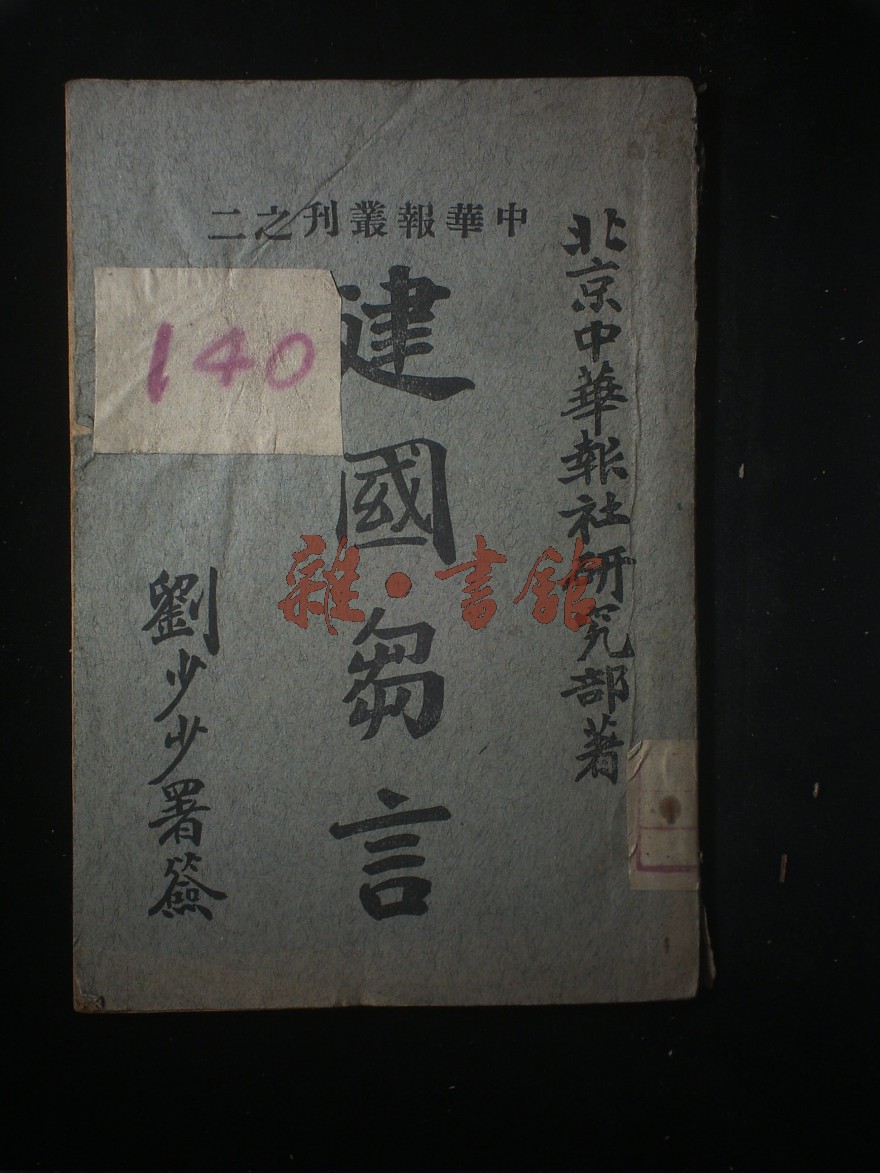 中華報叢刊之二
北京中華報社研究部著
建國芻言
劉少少署簽
140
雜·書館